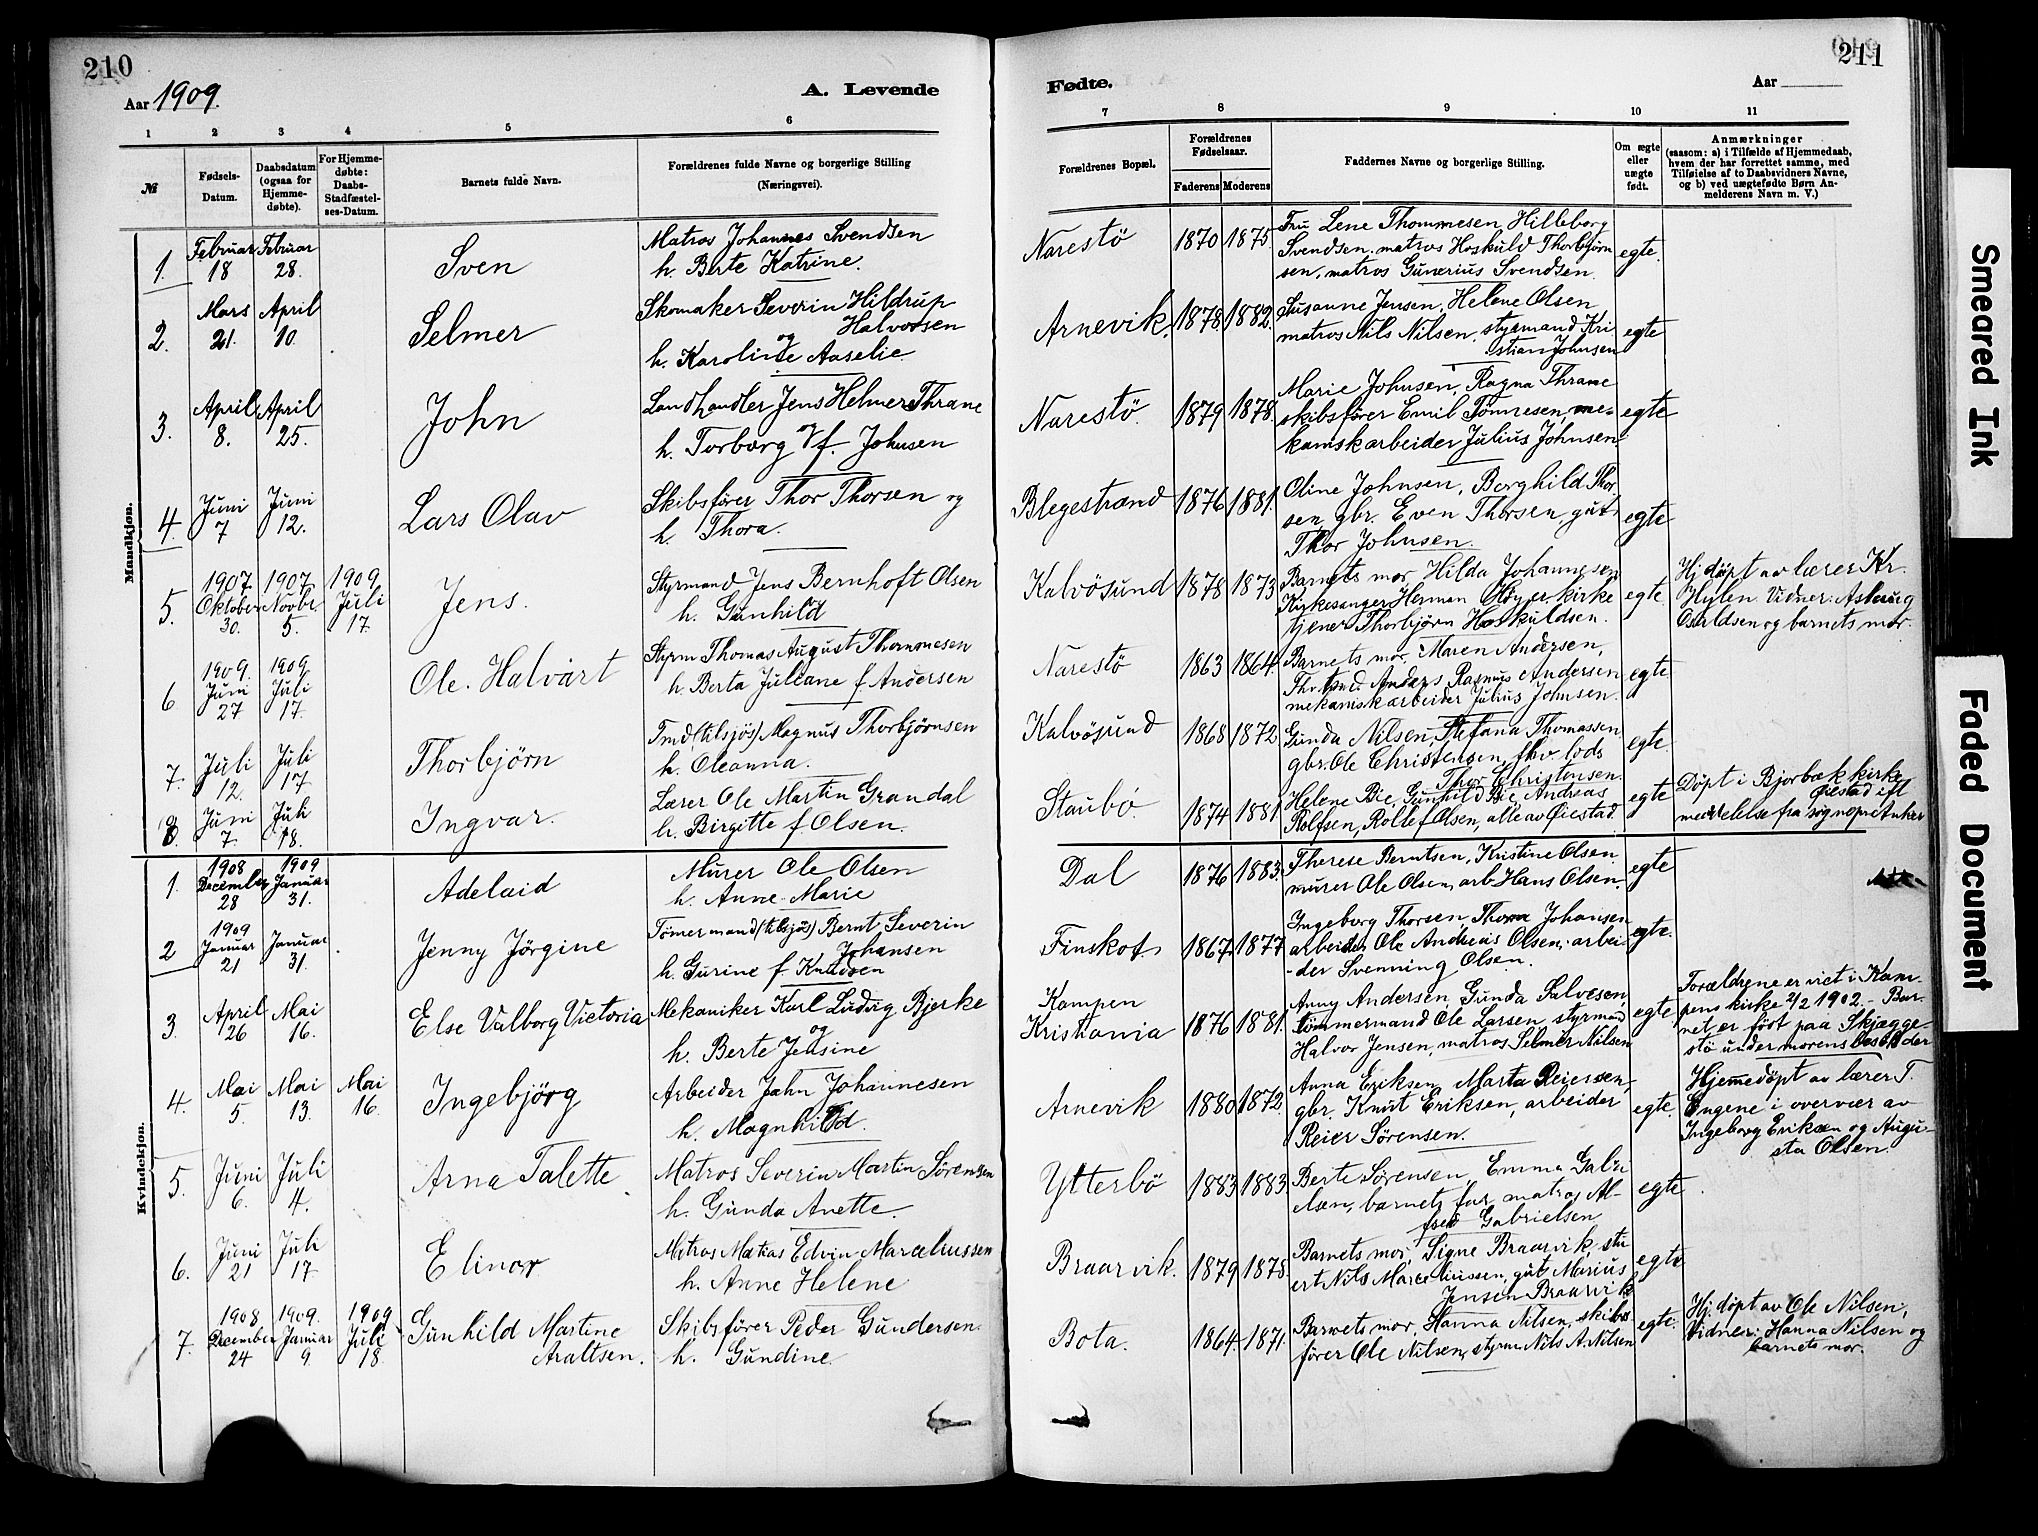 210
Aar 1909.
A. Levende
1 2 3 4 5 6
№
Fødsels-
Datum.
Daabsdatum
(ogsaa for
Hjemme-
døbte).
For Hjemme-
døbte:
Daabs-
Stadfæstel-
ses-Datum.
Barnets fulde Navn.
Forældrenes fulde Navne og borgerlige Stilling
(Næringsvei).
Mandkjøn.
1. Februar 18 Februar 28. Sven
Matros Johannes Svendsen
h. Berte Katrine.
2. Mars 21. April 10. Selmer
Skomaker Severin Hildrup
Halvorsen
og
h. Karoline Aaselie
3. April 8. April 25. John
Landhandler Jens Helmer Thrane
og
h. Torborg f. Johnsen
4. Juni 7 Juni 12. Lars Olav
Skibsfører Thor Thorsen og
h. Thora.
5. 1907. Oktober 30. 1907. Novbr 5. 1909 Juli 17. Jens.
Styrmand Jens Bernhoft Olsen
h. Gunhild
6 1909. Juni 27 1909 Juli 17. Ole. Halvart
Styrm Thomas August Thommesen
h. Berta Juliane f Andersen
7. Juli 12. Juli 17. Thorbjørn
Tmd (tilsjøs) Magnus Thorbjørnsen
h. Oleanna.
8. Juni 7. Juli 18. Ingvar.
Lærer Ole Martin Grandal
h. Birgitte f Olsen.
Kvindekjøn.
1. 1908 December 28 1909 Januar 31. Adelaid
Murer Ole Olsen
h. Anne Marie
2 1909 Januar 21 Januar 31. Jenny Jørgine
Tømermand (tilsjøs) Bernt Severin
Johansen
h. Gurine f Knudsen
3 April 26 Mai 16. Else Valborg Victoria
Mekaniker Karl Ludvig Bjerke
og
h. Berte Jensine
4. Mai 5. Mai 13. Mai 16. Ingebjørg
Arbeider Jahn Johannesen
h. Magnhild.
5. Juni 6. Juli 4. Arna Talette.
Matros Severin Martin Sørensen
h. Gunda Anette.
6. Juni 21 Juli 17. Elinor
Matros Matias Edvin Marceliussen
h. Anne Helene
7. 1908. December 24 1909. Januar 9. 1909 Juli 18. Gunhild Martine
Arattsen.
Skibsfører Peder Gundersen.
h. Gundine.
211
Fødte.
Aar
7 8 9 10 11
Forældrenes Bopæl.
Forældrenes
Fødselsaar.
Faderens Moderens
Faddernes Navne og borgerlige Stilling.
Om ægte
eller
uægte
født.
Anmærkninger
(saasom: a) i Tilfælde af Hjemmedaab,
hvem der har forrettet samme, med
Tilføielse af to Daabsvidners Navne,
og b) ved uægtefødte Børn An-
melderens Navn m. V.)
Narestö 1870 1875
Fru Lene Thommesen, Hilleborg
Svendsen, matros Hoskuld Thorbjørn
sen, matros Gunerius Svendsen.
egte.
Arnevik. 1878 1882.
Susanne Jensen, Helene Olsen
matros Nils Nilsen, styrmand Kri
stian Johnsen
egte
Narestö. 1879 1878.
Marie Johnsen, Ragna Thrane
skibsfører Emil Tønnesen, me-
kaniskarbeider Julius Johnsen
egte
Blegestrand 1876 1881.
Oline Johnsen, Borghild Thor
sen, gbr. Even Thorsen, gut
Thor Johnsen.
egte
Kalvösund 1878 1873
Barnets mor, Hilda Johannesen
Kirkesanger Herman Høyer, kirke
tjener Thorbjørn Hoskuldsen.
egte.
Hj. døpt av lærer Kr.
Hylen. Vidner: Aslaug
Osuldsen og barnets mor.
Narestö 1863 1864.
Barnets mor, Maren Andersen,
Thv. tmd. Anders Rasmus Andersen
mekaniskarbeider Julius Johnsen.
egte.
Kalvösund 1868 1872.
Gunda Nilsen, Stefana Thomassen
gbr. Ole Christensen, fhv. lods
Thor Christensen.
egte.
Staubö. 1874 1881
Helene Bie, Gunhild Bie, Andreas
Rolfsen, Rollef Olsen, alle av Øiestad.
egte
Døpt i Bjorbæk kirke
Øiestad eft
meddelelse fra sogneprst Anker
Dal 1876 1883.
Therese Berntsen, Kristine Olsen
murer Ole Olsen, arb Hans Olsen.
egte
Finskot. 1867. 1877
Ingeborg Thorsen, Thora Johansen
arbeider Ole Andreas Olsen, arbei-
-der Svenning Olsen.
egte.
Kampen
Kristiania 1876 1881.
Anny Andersen, Gunda Salvesen,
tømmermand Ole Larsen, styrmand
Halvor Jensen, matros Selmer Nilsen
egte
Forældrene er viet i Kam-
pens kirke 2/2 1902. - Bar-
net er født paa Skjægge-
stö under morens besök der
Arnevik 1880 1872.
Anna Eriksen, Marta Reiersen,
gbr. Knut Eriksen, arbeider
Reier Sørensen.
egte.
Hjemmedøpt av lærer T.
Engene i overvær av
Ingeborg Eriksen og Augu-
sta Olsen.
Ytterbö 1883 1883.
Berte Sørensen, Emma Gabri
elsen, barnets far, matros Al-
fred Gabrielsen
egte.
Braarvik. 1879 1878.
Barnets mor, Signe Braarvik, stu
ert Nils Marceliussen, gut Marius
Jensen Braarvik
egte
Bota. 1864. 1871.
Barnets mor, Hanna Nilsen, skibs
fører Ole Nilsen, styrm Nils A. Nilsen
egte.
Hj. døpt av Ole Nilsen,
Vidner: Hanna Nilsen og
barnets mor.
Smeared Ink
Faded Document